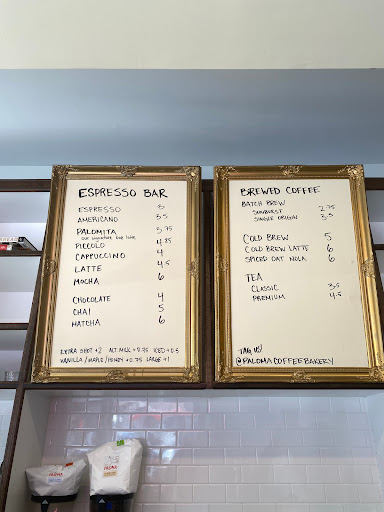 ESPRESSO BAR
ESPRESSO 3
AMERICANO 3.5
PALOMITA 5.75
PICCOLO 4.25
CAPPUCCINO 4
LATTE 4.5
MOCHA 6
CHOCOLATE 4
CHAI 5
MATCHA 6
EXTRA SHOT +2 ALT. MILK +0.75 ICED +0.5
VANILLA/MAPLE/HONEY +0.75 LARGE +1
BREWED COFFEE
BATCH BREW
SUNBURST 2.75
SINGLE ORIGIN 3.5
COLD BREW 5
COLD BREW LATTE 6
SPICED OAT NOLA 6
TEA
CLASSIC 3.5
PREMIUM 4.5
TAG US!
@PALOMACOFFEEBAKERY
PALOMA
PALOMA